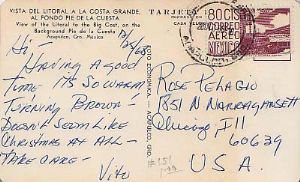 VISTA DEL LITORAL A LA COSTA GRANDE,
AL FONDO PIE DE LA CUESTA
View of the Litoral to the Big Cost, on the
Background Pie de la Cuesta
Acapulco, Gro. Mexico
TARJETA
80 CTS
CORREO
AEREO
MEXICO
Hi,
Having a good
time its so warm
Turning Brown -
Doesn't seem like
Christmas at all -
Take care -
Vito
Rose Pelagio
1851 N Narragansett
Chicago Ill
60639
U.S.A.